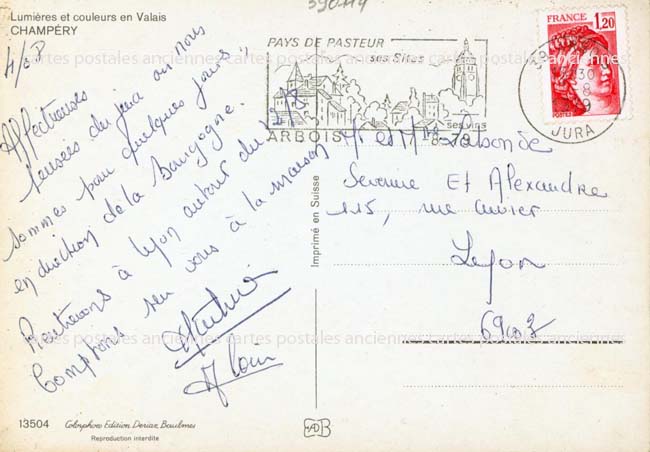 39044
Lumières et couleurs en Valais
CHAMPÉRY
Affectueuses
pensées du jura où nous
sommes pour quelques jours
en direction de la Bourgogne.
Rentrerons à Lyon autour du
Comptons sur vous à la maison
Alain
13504 Colorphoto Edition Deriaz, Baulmes
Reproduction interdite
Imprimé en Suisse
PAYS DE PASTEUR
ses Sites
ses vins
ARBOIS
JURA
FRANCE
1,20
POSTES
M et Mme
Severine Et Alexandre
115, rue Cuvier
Lyon
69003
cartes postales anciennes cartes postales anciennes cartes postales anciennes
cartes postales anciennes cartes postales anciennes cartes postales anciennes